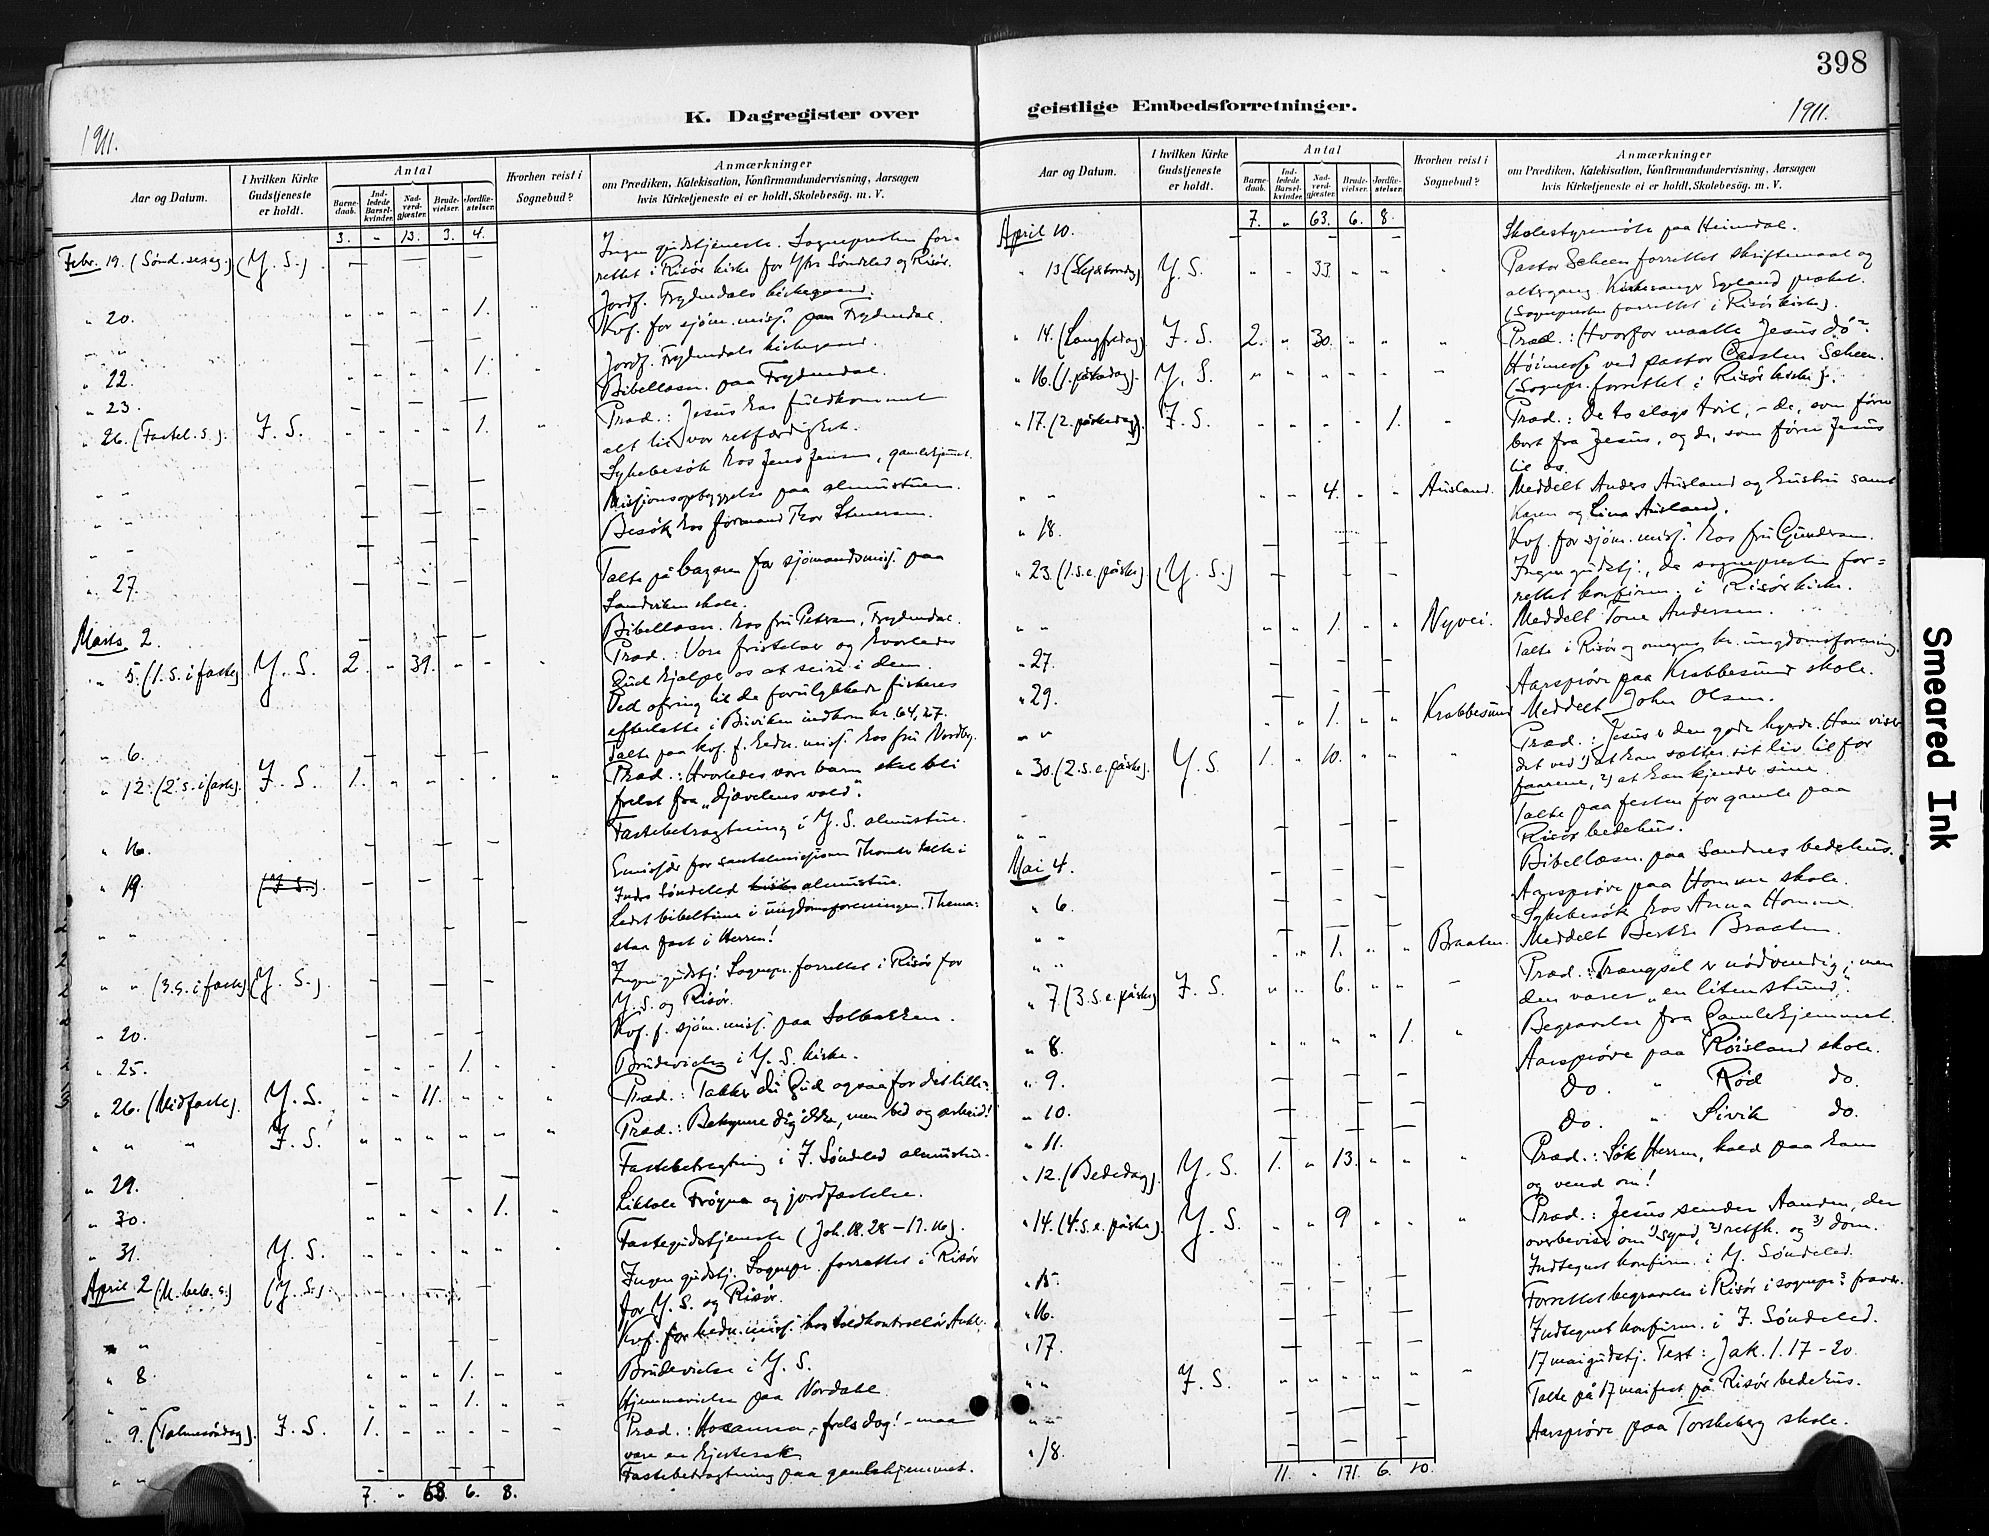 398
K. Dagregister over
1911.
Aar og Datum.
I hvilken Kirke Gudstjeneste er holdt.
Antal
Barne-daab.
Ind-ledede Barsel-kvinder.
Nad-verd-gjæster.
Brude-vielser.
Jordfæ-stelser.
Hvorhen reist i Sognebud?
Anmærkninger
om Prædiken, Katekisation, Konfirmandundervisning, Aarsagen
hvis Kirketjeneste ei er holdt, Skolebesøg. m. V.
3. " 13. 3. 4.
Febr. 19. (Sønd. sexag.) (Y. S.) Ingen gudstjeneste. Sognepresten for-
rettet i Risør kirke for Ytre Søndeled og Risør.
" 20. " " " " 1. " Jordf. Frydendals kirkegaard.
" " Kvf. for sjøm. miss. paa Frydendal.
" 22. " " " " 1. " Jordf. Frydendals kirkegaard.
" 23. Bibellæsn. paa Frydendal.
" 26. (Fastel. s.). I. S. " " " " 1. " Præd.: Jesus har fuldkommet
alt til vor retfærdighet.
" " Sykebesøk hos Jens Jensen, gamlehjemmet.
" " Missionsopbyggelse paa almustuen.
" " Besøk hos formand Thor Stenersen.
" 27. Talte på basaren for sjømandsmiss. paa
Sandviken skole.
Marts 2. Bibellæsn. hos fru Petersen, Frydendal.
" 5. (1. s. i faste) Y. S. 2. " 39. " " " Præd.: Vore fristelser og hvorledes
Gud hjælper os at seire i dem.
Ved ofring til de forulykkede fiskeres
efterlatte i Biviken indkom kr. 64,27.
" 6. Talte paa kvf. f. hedn. miss. hos fru Nordby.
" 12. (2. s. i faste). I. S. 1. " " " " " Præd.: Hvorledes vore barn skal bli
frelst fra "djævelens vold".
" 16. Fastebetragtning i Y. S. almustue.
" 19. (I. S.) Emissær for santalmissionen Thomter talte i
Indre Søndeled kirke almustue.
" " Ledet bibeltime i ungdomsforeningen. Thema:
staa fast i Herren!
" " (3. s. i faste) (Y. S.). Ingen gudstj. Sognepr. forrettet i Risør for
Y. S. og Risør.
" 20. Kvf. f. sjøm. miss. paa Solbakken.
" 25. " " " 1. " " Brudevielse i Y. S. kirke.
" 26. (Midfaste). Y. S. " " 11. " " " Præd.: Takker du Gud ogsaa for det lille?
" " " I. S. " " " " " " Præd.: Bekymre dig ikke, men bed og arbeid!
" 29. Fastebetragtning i I. Søndeled almustue.
" 30. " " " " 1. " Liktale Frøyna og jordfæstelse.
" 31. Y. S. " " " " " " Fastegudstjeneste (Joh. 18. 28 – 19. 16).
April 2 (M. beb. s.) (Y. S.) Ingen gudstj. Sognepr. forrettet i Risør
for Y. S. og Risør.
" " Kvf. for hedn. miss. hos toldkontrollør
" 8. " " " 1. " " Brudevielse i Y. S.
" " " " " 1. " " Hjemmevielse paa Nordahl.
" 9. (Palmesøndag). I. S. 1. " " " " " Præd.: Hosanna, – frels dog! – maa
være en hjertesak.
" " Fastebetragtning paa gamlehjemmet.
7. " 63. 6. 8.
geistlige Embedsforretninger.
1911.
Aar og Datum.
I hvilken Kirke Gudstjeneste er holdt.
Antal
Barne-daab.
Ind-ledede Barsel-kvinder.
Nad-verd-gjæster.
Brude-vielser.
Jordfæ-stelser.
Hvorhen reist i Sognebud?
Anmærkninger
om Prædiken, Katekisation, Konfirmandundervisning, Aarsagen
hvis Kirketjeneste ei er holdt, Skolebesøg. m. V.
7. " 63. 6. 8.
April 10. Skolestyremøte paa Heimdal.
" 13 (Skjærtorsdag) Y. S. " " 33. " " " Pastor Scheen forrettet skriftemaal og
altergang. Kirkesanger Egeland præket.
(Sognepresten forrettet i Risør kirke).
" 14. (Langfredag) I. S. 2. " 30. " " " Præd.: "Hvorfor maatte Jesus dø"?
" 16. (1. påskedag). Y. S. " " " " " " Høimesse ved pastor Carsten Scheen.
(Sognepr. forrettet i Risør kirke).
" 17. (2. påskedag). I. S. " " " " 1. " Præd.: De to slags tvil, – de, som fører
bort fra Jesus, og de, som fører Jesus
til os.
" " " " 4. " " Ausland. Meddelt Anders Ausland og hustru samt
Karen og Lina Ausland.
" 18. Kvf. for sjøm. miss. hos fru Gundersen.
" 23. (1. s. e. påske) (Y. S.) Ingen gudstj., da sognepresten for-
rettet konfirm. i Risør kirke.
" " " " 1. " " Nyvei. Meddelt Tone Andersen.
" 27. Talte i Risør og omegns kr. ungdomsforening.
" 29. Aarsprøve paa Krabbesund skole.
" " " " 1. " " Krabbesund Meddelt John Olsen.
" 30. (2. s. e. påske). Y. S. 1. " 10. " " " Præd.: Jesus er den gode hyrde. Han viser
det ved 1) at han sætter sit liv til for
faarene, 2) at han kjender sine.
" Talte paa festen for gamle paa
Risør bedehus.
Mai 4. Bibellæsn. paa Sandnes bedehus.
" 6. Aarsprøve paa Homme skole.
" " Sykebesøk hos Anna Homme.
" " " " 1. " " Braaten. Meddelt Berthe Braaten.
" 7. (3. s. e. påske) I. S. " " 6. " " " Præd.: Trængsel er nødvendig; men
den varer "en liten stund".
" 8. " " " " 1. " Begravelse fra Gamlehjemmet.
" 9. Aarsprøve paa Røisland skole.
" 10. Do. " Rød do.
" 11. Do. " Sivik do.
" 12. (Bededag). Y. S. 1. " 13. " " " Præd.: Søk Herren, kald paa ham
og vend om!
" 14. (4. s. e. påske). Y. S. " " 9 " " " Præd.: Jesus sender Aanden, der
overbeviser om 1) synd, 2) retfh. og 3) dom.
" 15. Indtegnet konfirm. i Y. Søndeled.
" 16. Forrettet begravelse i Risør i sognepr.s fravær.
" 17. Indtegnet konfirm. i I. Søndeled.
" " I. S. " " " " " " 17 maigudstj. Text: Jak. 1. 17 – 20.
" " Talte på 17 maifest på Risør bedehus.
" 18. Aarsprøve paa Torskeberg skole.
11. " 171. 6. 10.
Smeared Ink